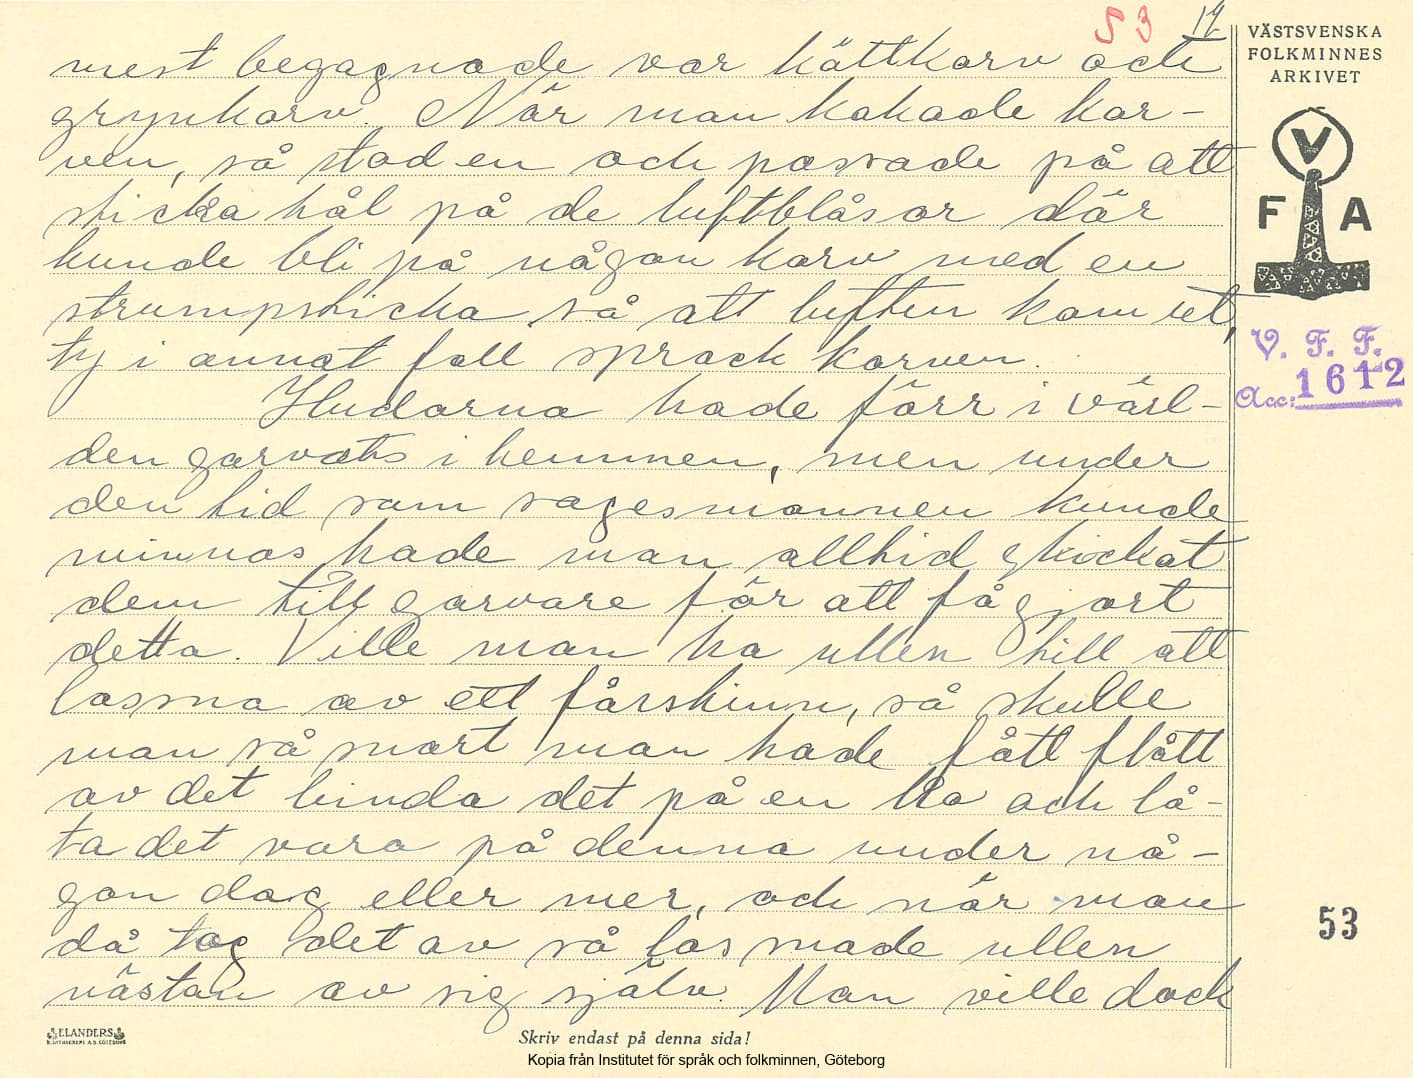 53 14
VÄSTSVENSKA
FOLKMINNES
ARKIVET
V
F A
V. F. F.
Acc: 1612
mest begagnade var köttkorv och
grynkorv. När man kokade kor-
ven, så stod en och passade på att
sticka hål på de luftblåsor där
kunde bli på någon korv med en
strumpsticka så att luften kom ut,
ty i annat fall sprack korven.
Hudarna hade förr i värl-
den garvats i hemmen, men under
den tid som sagesmannen kunde
minnas hade man alltid skickat
dem till garvare för att få gjort
detta. Ville man ha ullen till att
lossna av ett fårskinn, så skulle
man så snart man hade fått flått
av det binda det på en ko och lå-
ta det vara på denna under nå-
gon dag eller mer, och när man
då tog det av så lossnade ullen
nästan av sig själv. Man ville dock
53
ELANDERS
Skriv endast på denna sida!
Kopia från Institutet för språk och folkminnen, Göteborg